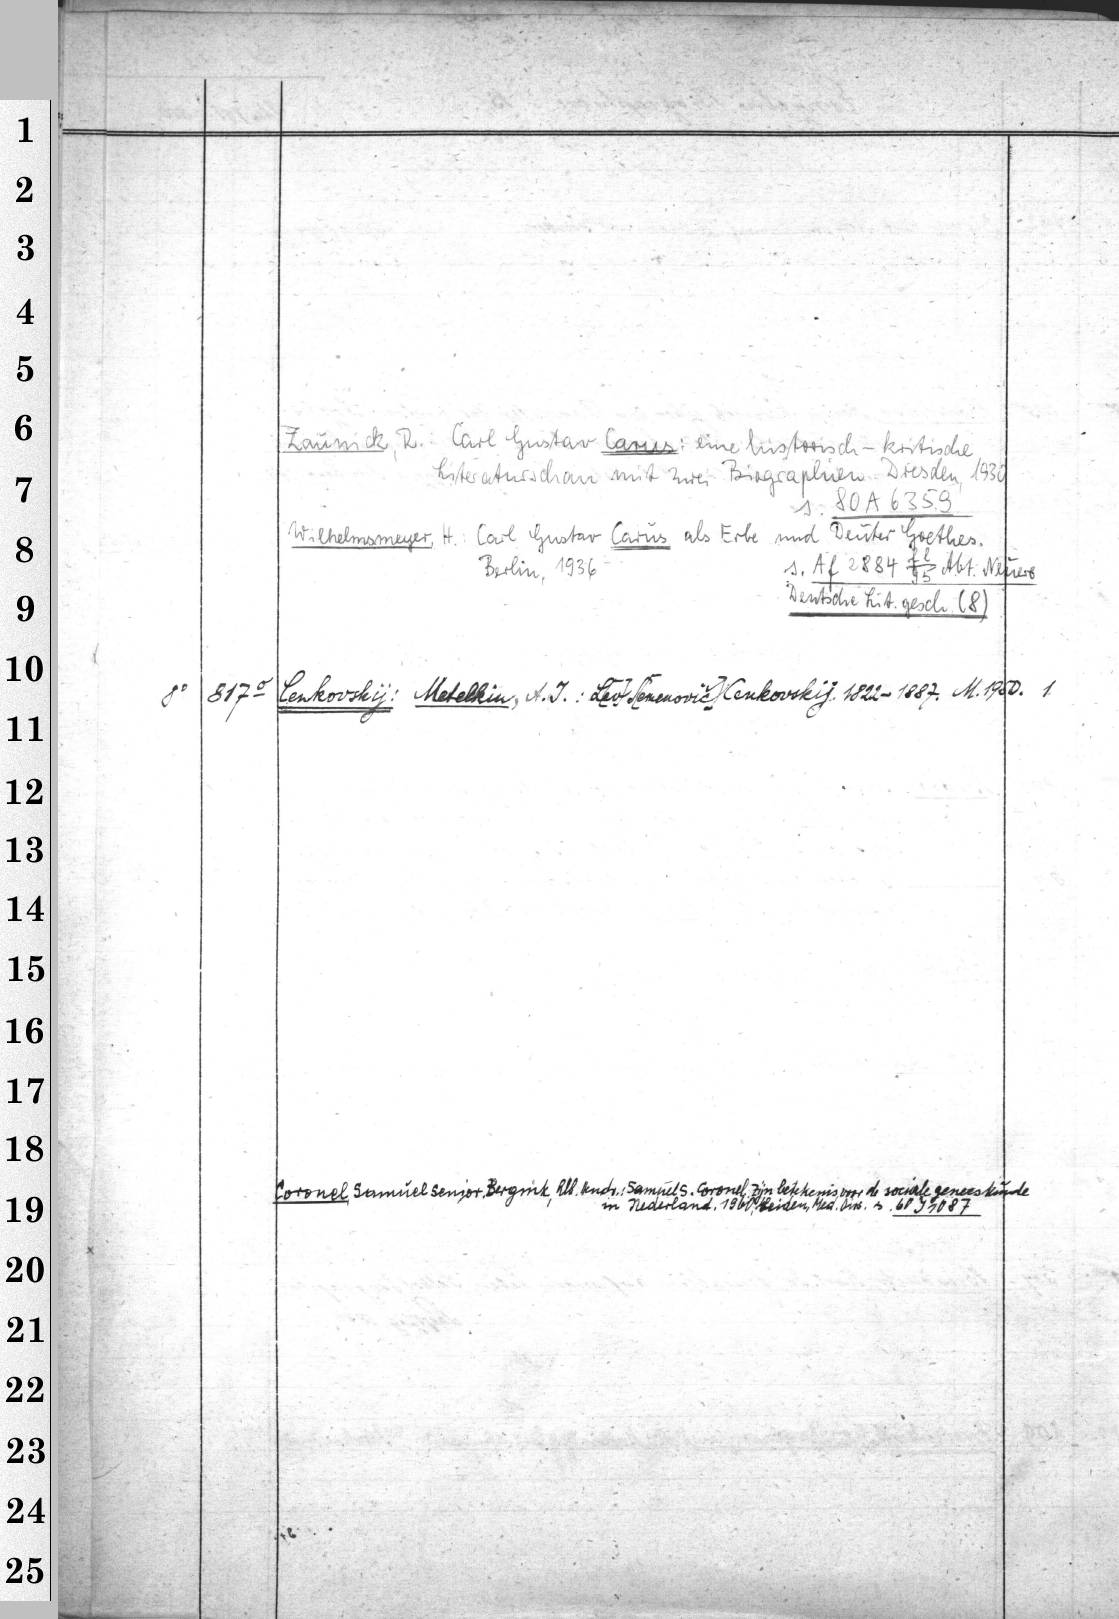 1
2
3
4
5
6
Zaunick, R.: Carl Gustav Carus: eine historisch-kritische
Literaturschau mit zwei Biographien. Dresden, 1930
7
s. 80 A 6359
Wilhelmsmeyer, H.: Carl Gustav Carus als Erbe und Deuter Goethes.
8
Berlin, 1936 s. Af 2884 Abt. Neuere
Deutsche Lit. gesch. (8)
9
10
8° 817 Cenkovskij: Metelkin, A. I.: Lev Semenovič Cenkovskij. 1822-1887. M. 1950. 1
11
12
13
14
15
16
17
18
Coronel, Samuel Senior, Bergink, Alb. Hndr.: Samuel S. Coronel, Zijn betekenis voor de sociale geneeskunde
19
in Nederland. 1960. Leiden, Med. Diss. s. 60
20
21
22
23
24
25